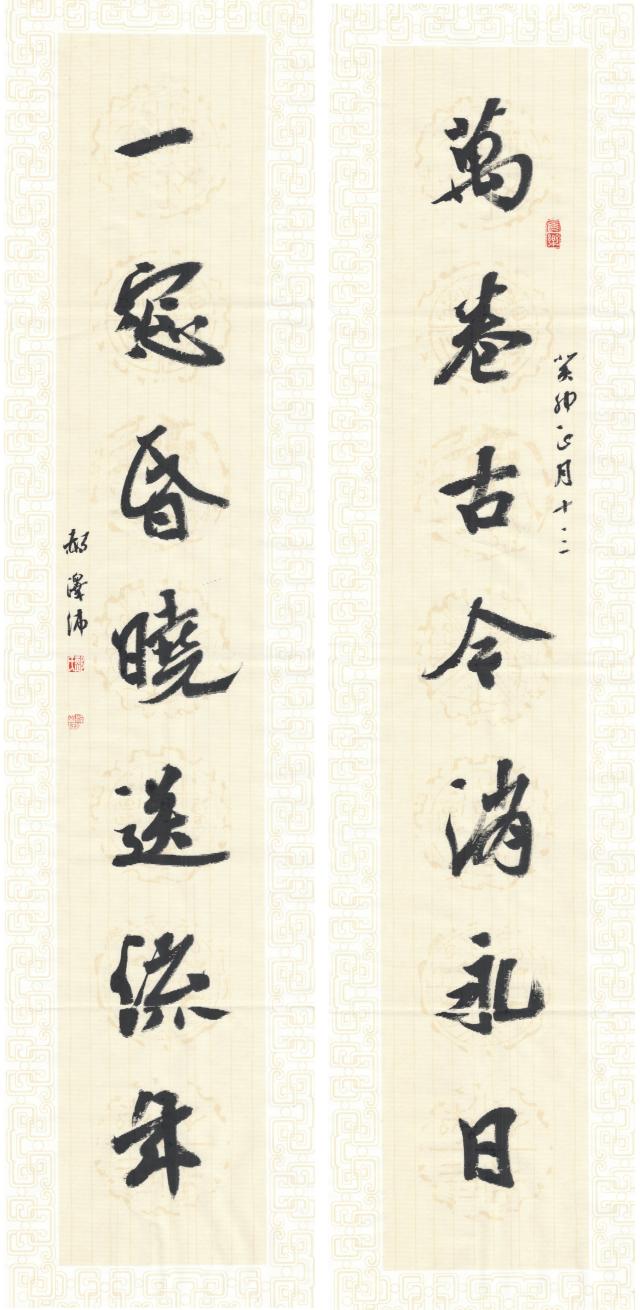 萬卷古今消永日
癸卯正月十三
一窓昏曉送流年
郝澤沛